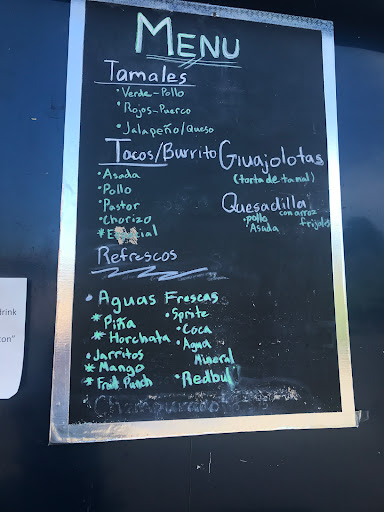 MENU
Tamales
• Verde-Pollo
• Rojos-Puerco
• Jalapeño/Queso
Tacos/Burrito
• Asada
• Pollo
• Pastor
• Chorizo
* Especial
Guajolotas
(torta de tamal)
Quesadilla
con arroz
frijoles
• pollo
Asada
Refrescos
• Aguas Frescas
* Piña
* Horchata
• Jarritos
* Mango
* Fruit Punch
• Sprite
• Coca
• Agua
Mineral
• Redbul
Champurrado
drink